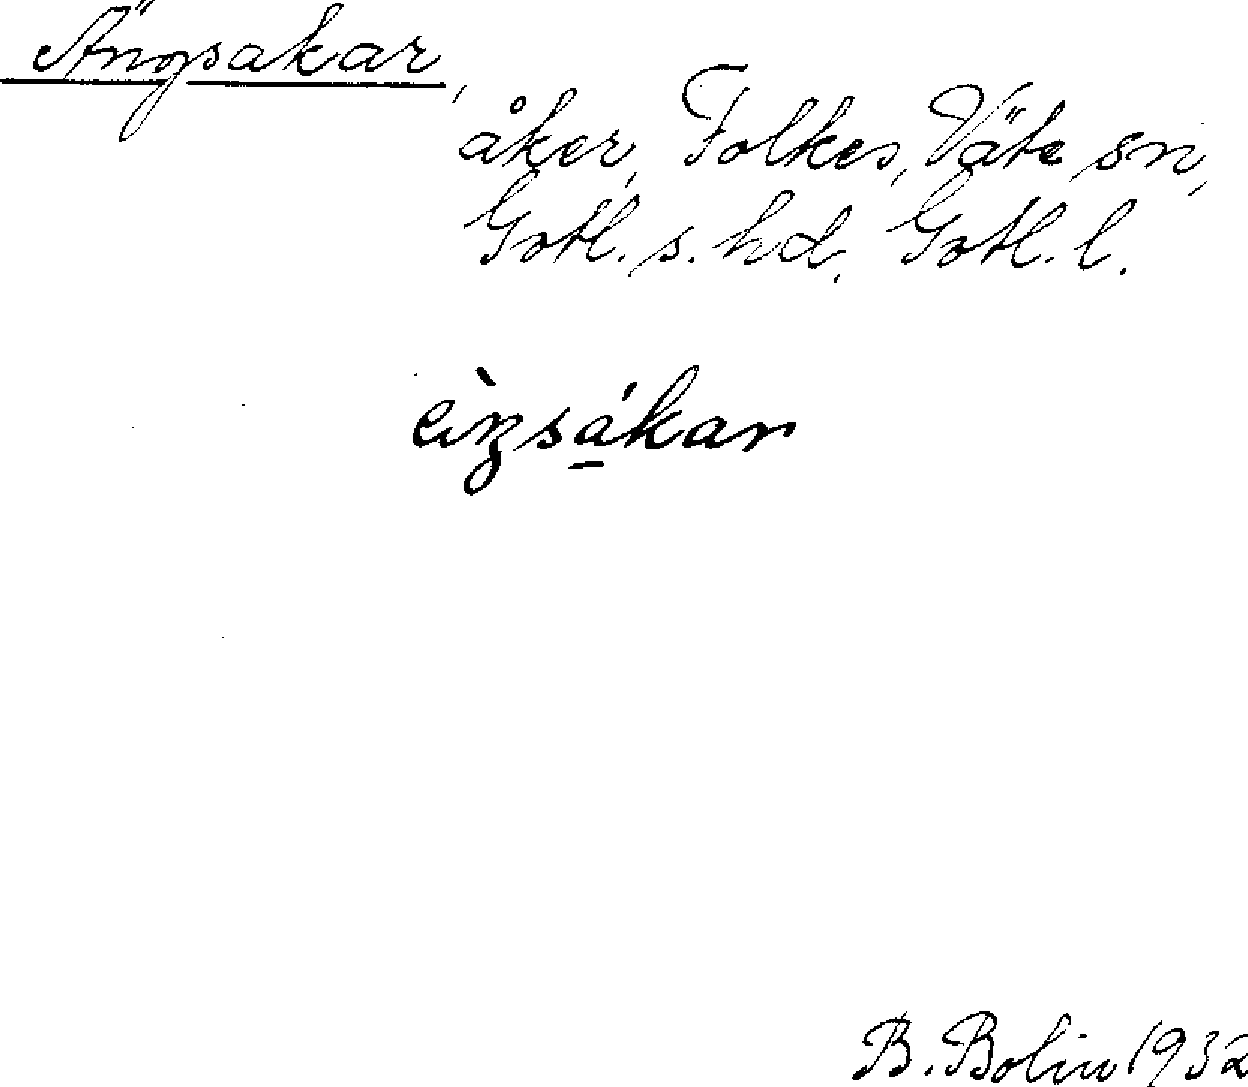 Ängsakar,
åker, Folkes, Väte sn,
Gotl. s. hd, Gotl. l.
B. Bolin 1932